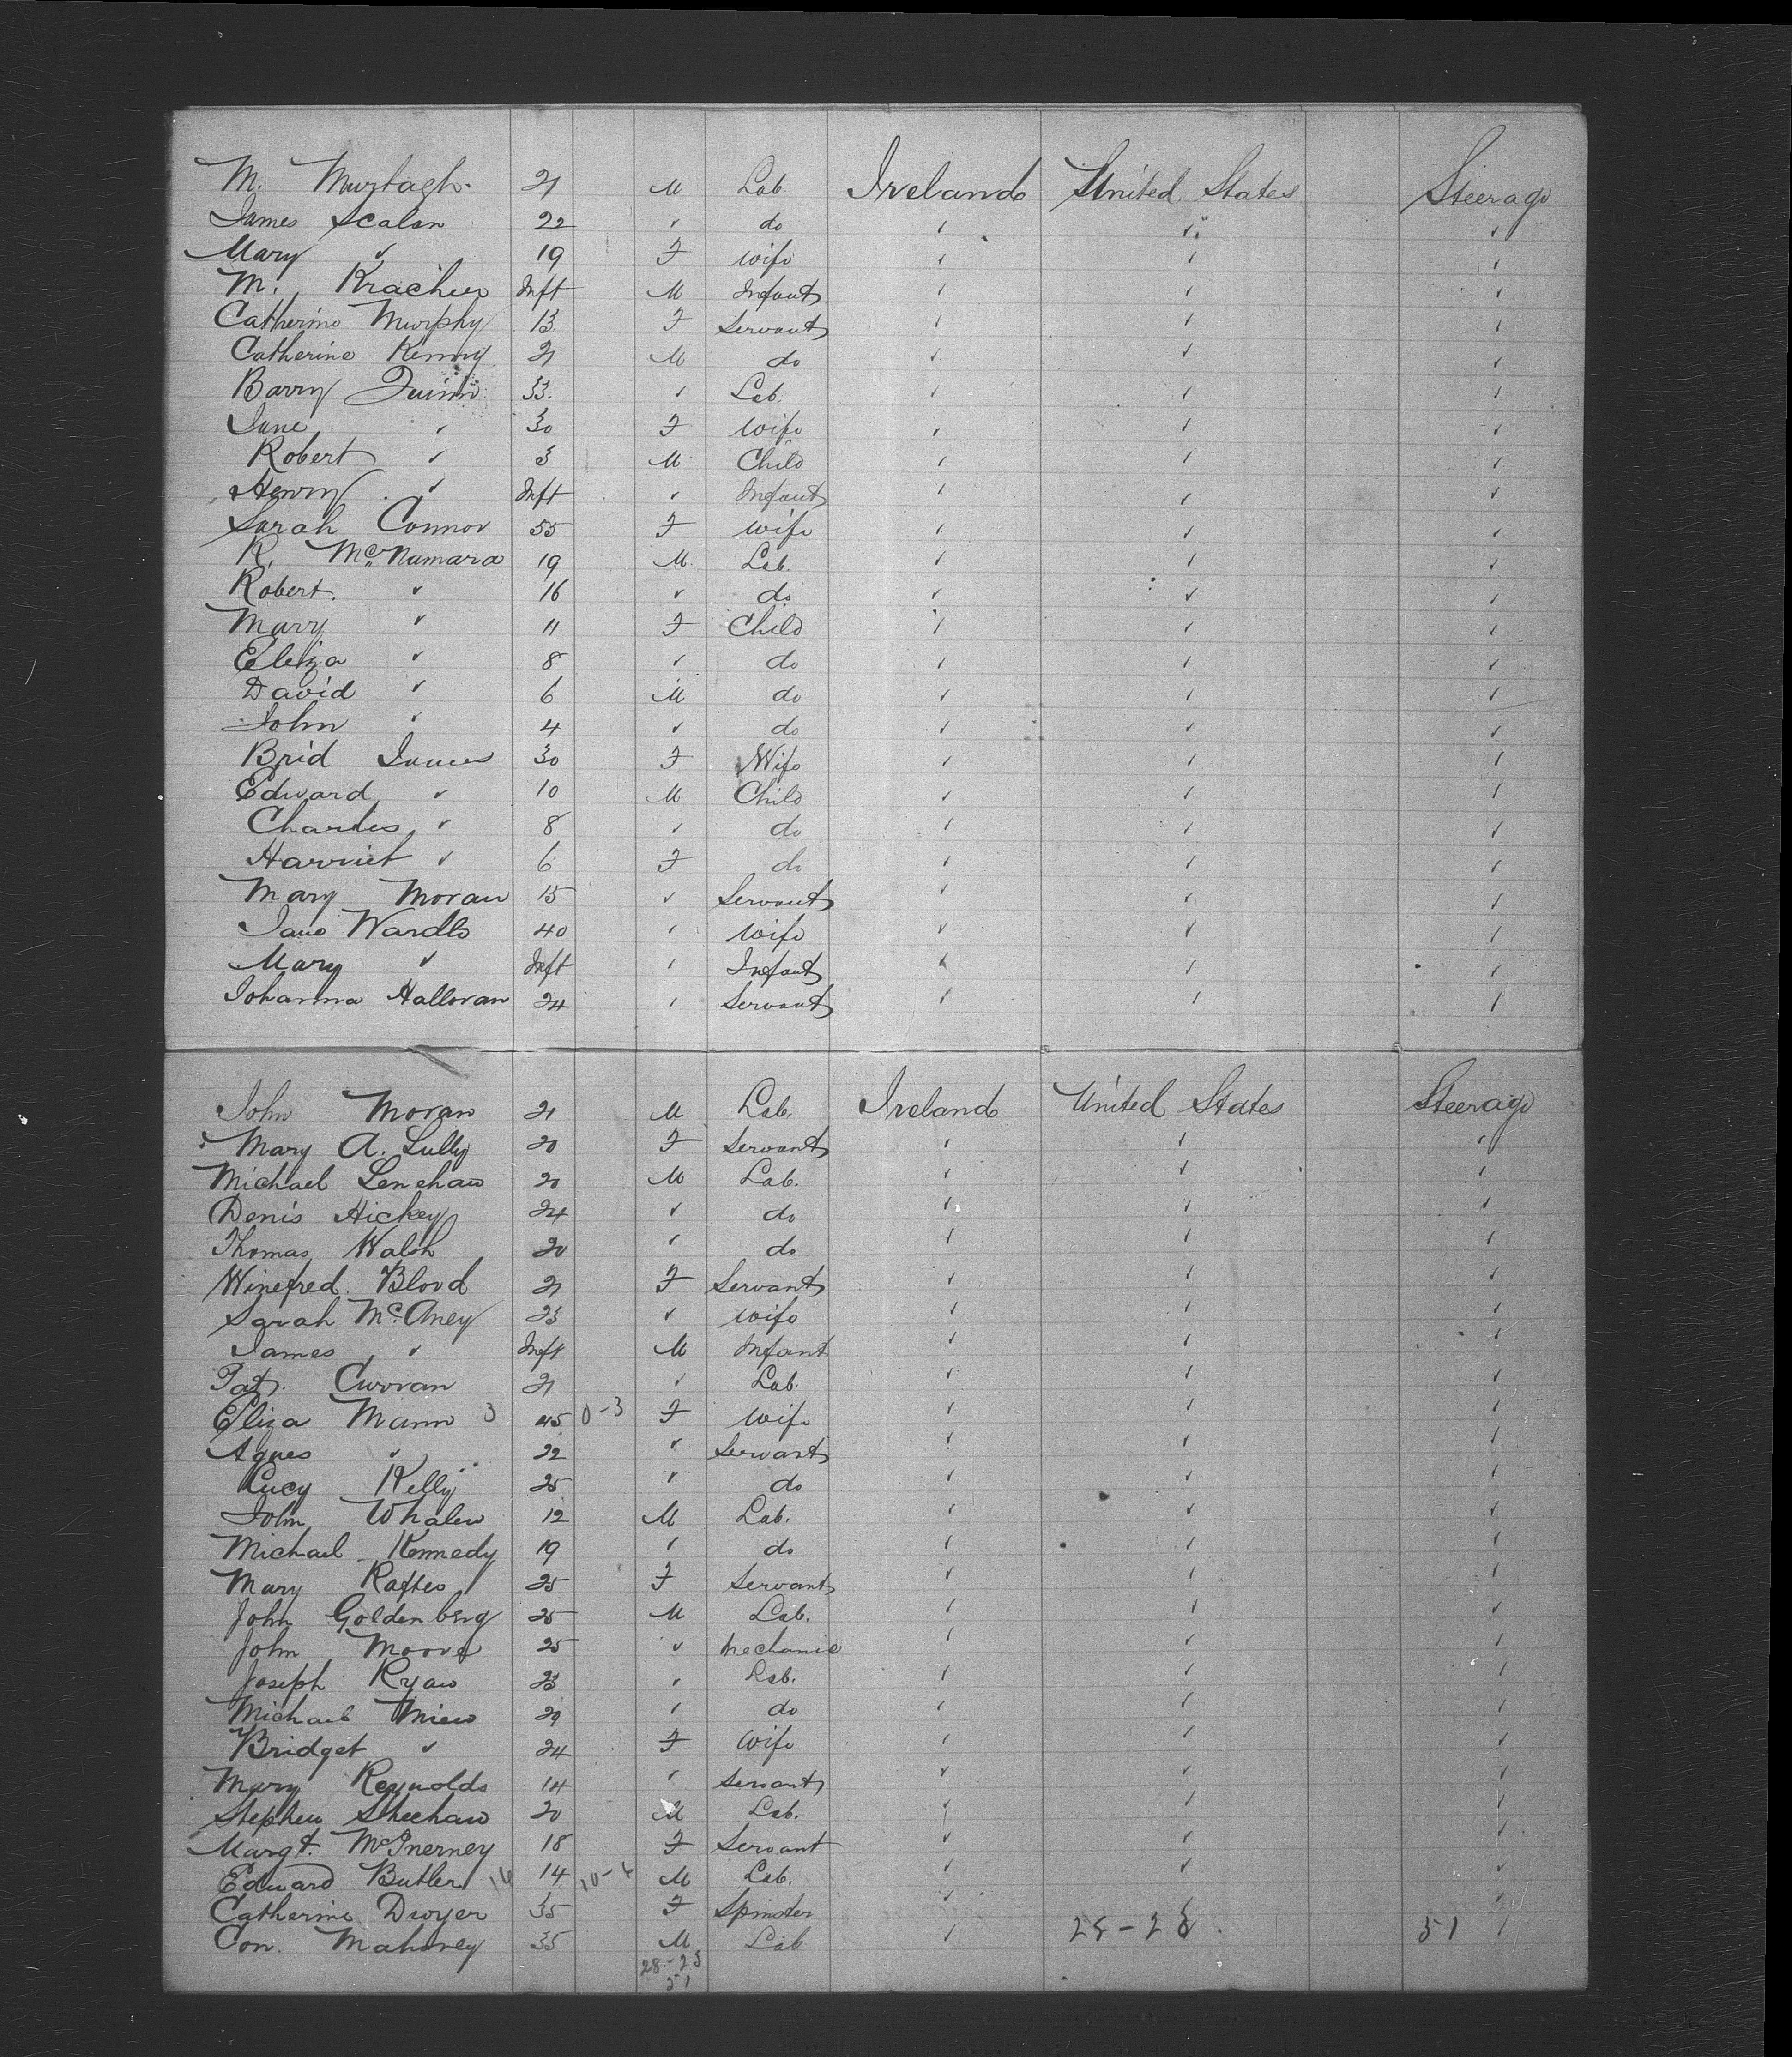 M. Murtagh 21 M Lab. Ireland United States Steerage
James Scalan 22 " do " " "
Mary " 19 F Wife " " "
M. Inft M Infant " " "
Catherine Murphy 13 F Servant " " "
Catherine Kenny 21 M do " " "
Barry Quinn 33. " Lab. " " "
Jane " 30 F Wife " " "
Robert " 3 M Child " " "
Henry " Inft " Infant " " "
Sarah Connor 55 F Wife " " "
R. McNamara 19 M Lab. " " "
Robert. " 16 " do " " "
Mary " 11 F Child " " "
Eliza " 8 " do " " "
David " 6 M do " " "
John " 4 " do " " "
Brid James 30 F Wife " " "
Edward " 10 M Child " " "
Charles " 8 " do " " "
Harriet " 6 F do " " "
Mary Moran 15 " Servant " " "
Jane Wardle 40 " Wife " " "
Mary " Inft " Infant " " "
Johanna Halloran 24 " Servant " " "
John Moran 21 M Lab. Ireland United States Steerage
Mary A. Lully 20 F Servant " " "
Michael Lenehan 20 M Lab. " " "
Denis Hickey 24 " do " " "
Thomas Walsh 20 " do " " "
Winefred Blood 21 F Servant " " "
Sarah McAney 23 " Wife " " "
James " Inft M Infant " " "
Pat. Curran 21 " Lab. " " "
Eliza Mann 3 45 0-3 F Wife " " "
Agnes " 22 " Servant " " "
Lucy Kelly 25 " do " " "
John Whalen 12 M Lab. " " "
Michael Kennedy 19 " do " " "
Mary Raftes 25 F Servant " " "
John Goldenberg 25 M Lab. " " "
John Moore 25 " Mechanic " " "
Joseph Ryan 23 " Lab. " " "
Michael " do " " "
Bridget " 24 F Wife " " "
Mary Reynolds 14 " Servant " " "
Stephen Sheehan 20 M Lab. " " "
Margt. McInerney 18 F Servant " " "
Edward Butler 16 14 10-6 M Lab. " " "
Catherine Dwyer 35 F Spinster " "
Con. Mahoney 35 M Lab " 28-23 51 "
28-23
51